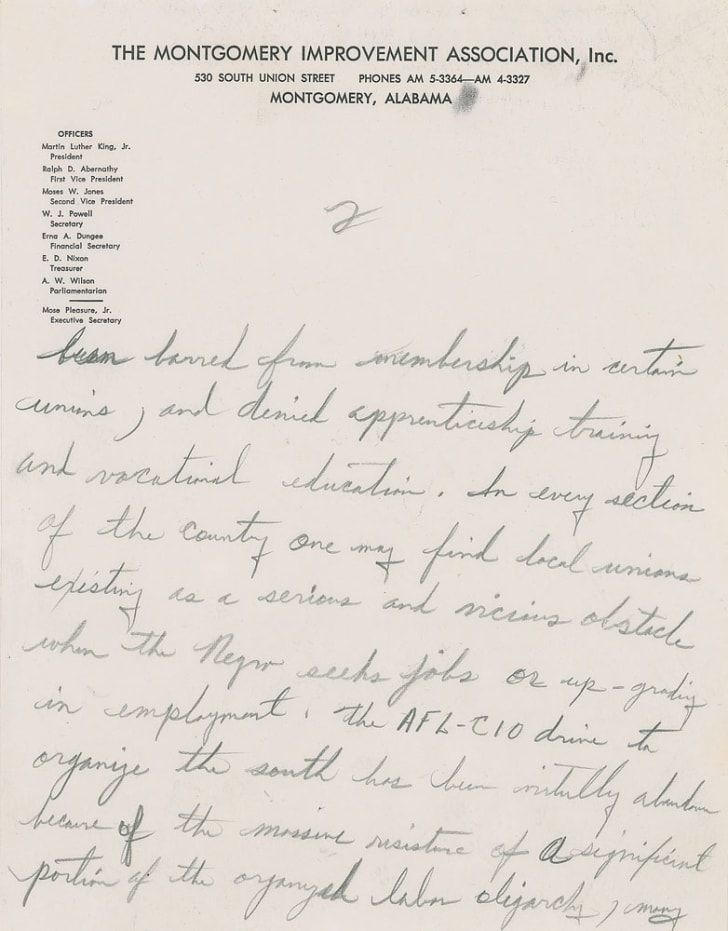 THE MONTGOMERY IMPROVEMENT ASSOCIATION, Inc.
530 SOUTH UNION STREET PHONES AM 5-3364—AM 4-3327
MONTGOMERY, ALABAMA
OFFICERS
Martin Luther King, Jr.
President
Ralph D. Abernathy
First Vice President
Moses W. Jones
Second Vice President
W. J. Powell
Secretary
Erna A. Dungee
Financial Secretary
E. D. Nixon
Treasurer
A. W. Wilson
Parliamentarian
Mose Pleasure, Jr.
Executive Secretary
2
been barred from membership in certain
unions, and denied apprenticeship training
and vocational education. In every section
of the county one may find local unions
existing as a serious and vicious obstacle
when the Negro seeks jobs or up-grading
in employment. The AFL-CIO drive to
organize the south has been virtually abandon
because of the massive resistance of a significant
portion of the organized labor oligarchy, many